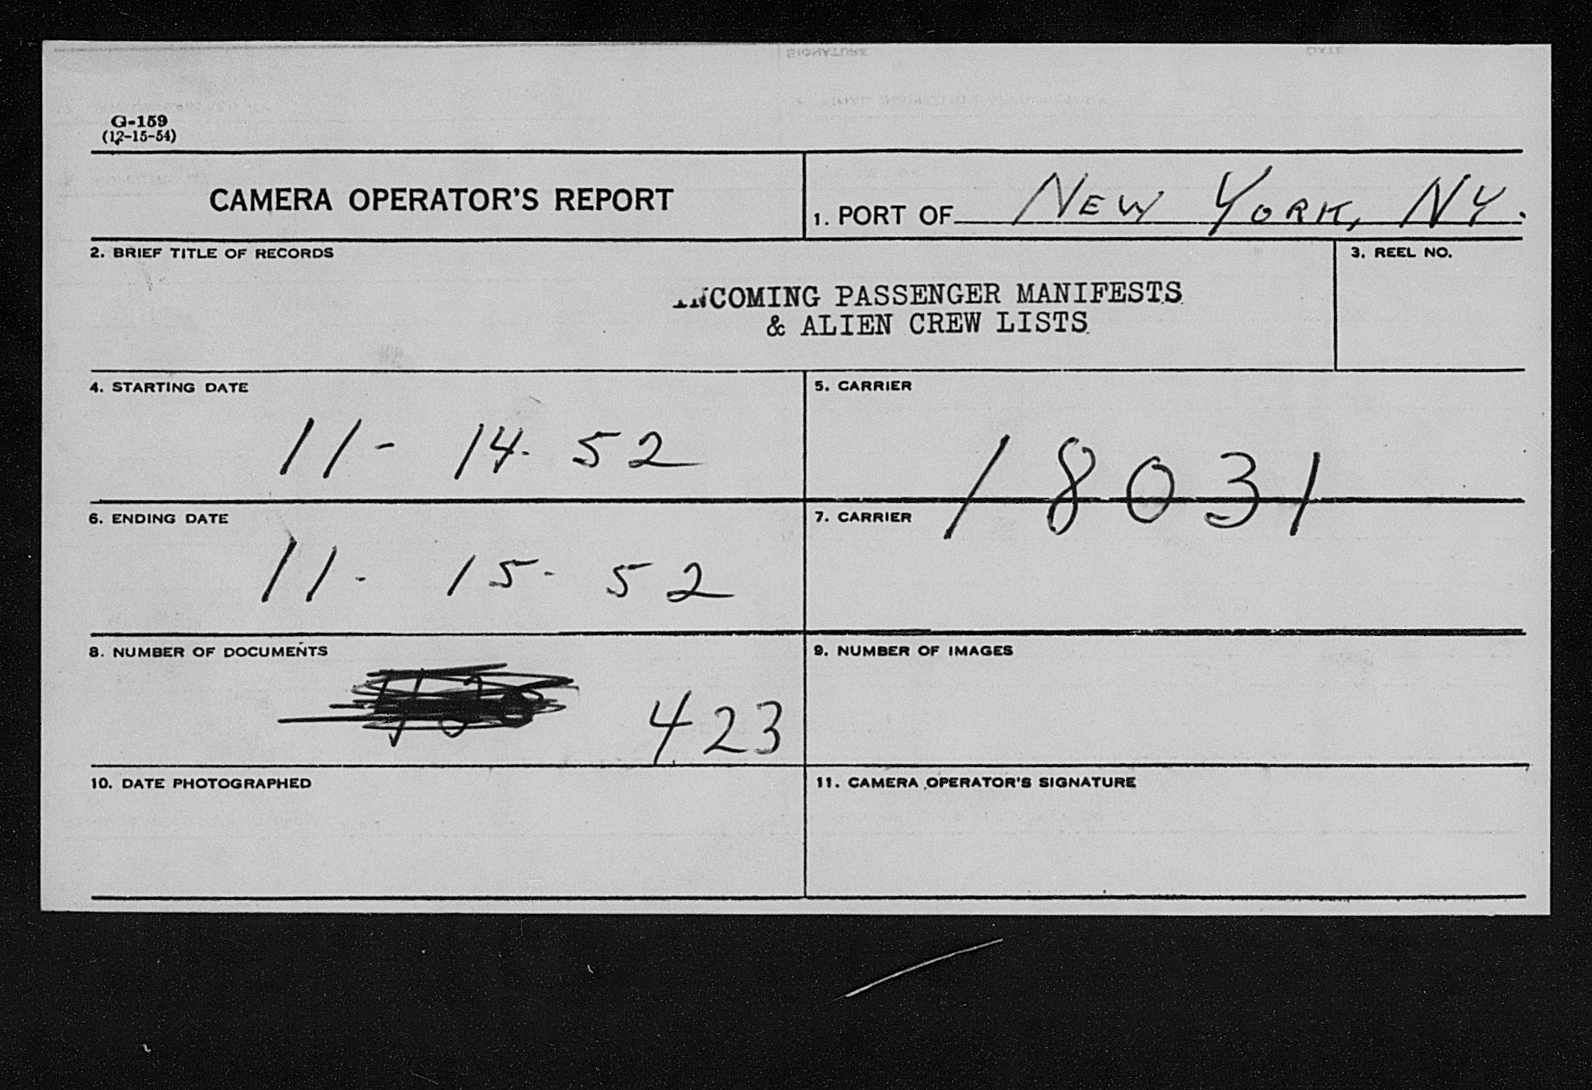 G-159
(12-15-54)
CAMERA OPERATOR'S REPORT
1. PORT OF NEW YORK, NY.
2. BRIEF TITLE OF RECORDS
3. REEL NO.
INCOMING PASSENGER MANIFESTS
& ALIEN CREW LISTS
4. STARTING DATE
11- 14- 52
5. CARRIER
18031
6. ENDING DATE
11- 15- 52
7. CARRIER
8. NUMBER OF DOCUMENTS
423
9. NUMBER OF IMAGES
10. DATE PHOTOGRAPHED
11. CAMERA OPERATOR'S SIGNATURE